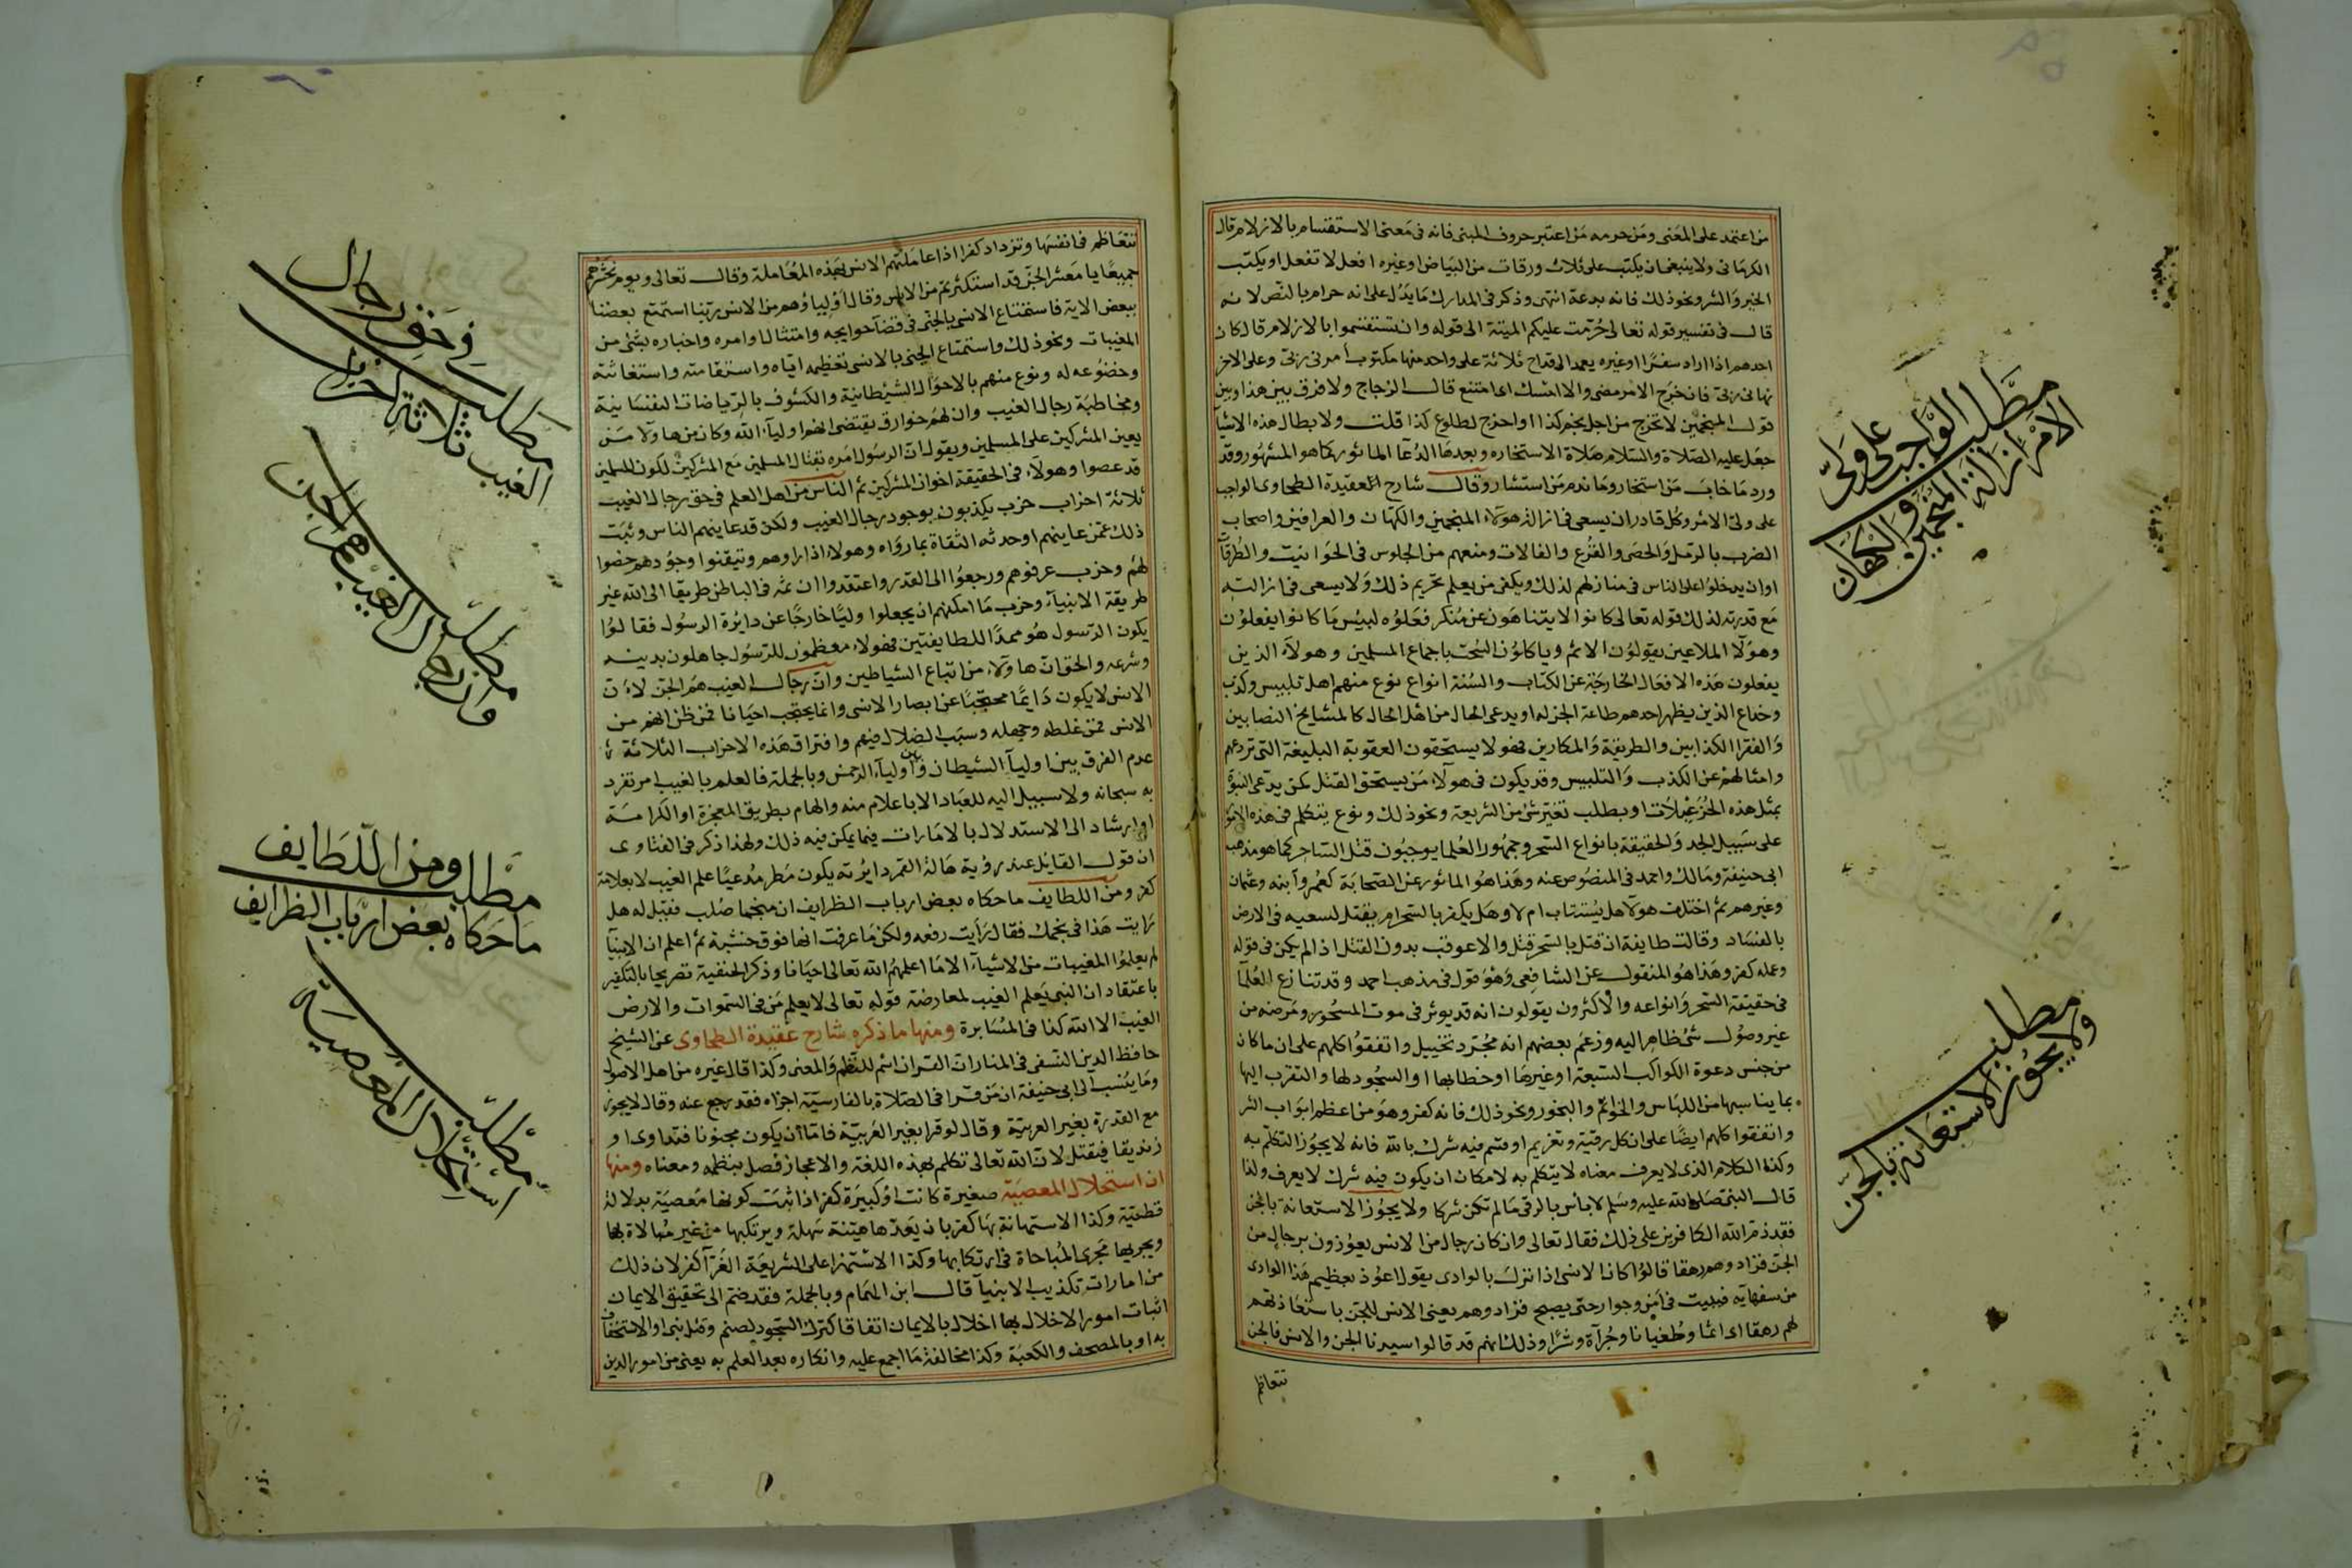 من اعتمد على المعنى ومن حرمه من اعتبر حروف المبنى فانه فى معنى الاستقسام بالازلام قال
الكرمانى ولا ينبغى ان يكتب على ثلاث ورقات من البياض او غيره افعل لا تفعل او يكتب
الخير والشر ونحو ذلك فانه بدعة انتهى وذكر فى المدارك ما يدل على انه حرام بالنص لانه
قال فى تفسير قوله تعالى حرمت عليكم الميتة الى قوله وان تستقسموا بالازلام قال كان
احدهم اذا اراد سفرا او غيره يعمد الى قداح ثلاثة على واحد منها مكتوب امرنى ربى وعلى الاخر
نهانى ربى فان خرج الامر مضى والا امسك اى امتنع قال الزجاج ولا فرق بين هذا وبين
قول المنجمين لا تخرج من اجل نجم كذا او اخرج لطلوع كذا قلت ولابطال هذه الاشيا
جعل عليه الصلاة والسلام صلاة الاستخاره وبعدها الدعآ الماثور كما هو المشهور وقد
ورد ما خاب من استخار وما ندم من استشار وقال شارح العقيدة الطحاوى الواجب
على ولى الامر وكل قادر ان يسعى فى ازالة هولاء المنجمين والكهان والعرافين واصحاب
الضرب بالرمل والحصى والقرع والفالات ومنعهم من الجلوس فى الحوانيت والطرقات
او ان يدخلوا على الناس فى منازلهم لذلك ويكفى من يعلم تحريم ذلك ولا يسعى فى ازالته
مع قدرته لذلك قوله تعالى كانوا لا يتناهون عن منكر فعلوه لبئس ما كانوا يفعلون
وهولآ الملاعين يقولون الاثم وياكلون السحت باجماع المسلمين وهولآء الذين
يفعلون هذه الافعال الخارجة عن الكتاب والسنة انواع نوع منهم اهل تلبيس وكذب
وخداع الذين يظهر احدهم طاعة الجن له او يدعى الحال من اهل المحال كالمشايخ النصابين
والفقرا الكذابين والطريقية والمكارين فهولا يستحقون العقوبة البليغة التى تردعهم
وامثالهم عن الكذب والتلبيس وقد يكون فى هولآء من يستحق القتل كمن يدعى النبوة
بمثل هذه الخزعبلات او يطلب تغير شئ من الشريعة ونحو ذلك ونوع يتكلم فى هذه الامور
على سبيل الجد والحقيقة بانواع السحر وجمهور العلما يوجبون قتل الساحر كما هو مذهب
ابى حنيفة ومالك واحمد فى المنصوص عنه وهذا هو الماثور عن الصحابة كعمر وابنه وعثمان
وغيرهم ثم اختلف هولآ هل يستتاب ام لا وهل يكفر بالسحر ام يقتل لسعيه فى الارض
بالفساد وقالت طايفة ان قتل بالسحر قتل والا عوقب بدون القتل اذا لم يكن فى قوله
وعمله كفر وهذا هو المنقول عن الشافعى وهو قول فى مذهب احمد وقد تنازع العلمآ
فى حقيقة السحر وانواعه والاكثرون يقولون انه قد يوثر فى موت المسحور ومرضه من
غير وصول شئ ظاهر اليه وزعم بعضهم انه مجرد تخييل واتفقوا كلهم على ان ما كان
من جنس دعوة الكواكب السبعة او غيرها او خطابها او السجود لها والتقرب اليها
بما يناسبها من اللباس والخواتم والبخور ونحو ذلك فانه كفر وهو من اعظم ابواب الشر
واتفقوا كلهم ايضا على ان كل رقية وتعزيم او قسم فيه شرك بالله فانه لا يجوز التكلم به
وكذا الكلام الذى لا يعرف معناه لا يتكلم به لامكان ان يكون فيه شرك لا يعرف ولذا
قال النبى صلى الله عليه وسلم لا بأس بالرقى ما لم تكن شركا ولا يجوز الاستعانة بالجن
فقد ذم الله الكافرين على ذلك فقال تعالى وان كان رجال من الانس يعوذون برجال من
الجن فزادوهم رهقا قالوا كان الانسى اذا نزل بالوادى يقول اعوذ بعظيم هذا الوادى
من سفهآيه فيبيت فى امن وجوار حتى يصبح فزادوهم يعنى الانس للجن باستعاذتهم
لهم رهقا اى اثما وطغيانا وجرآة وشرا وذلك انهم قد قالوا سيدنا الجن والانس فالجن
تتعاظم
مطلب الواجب على ولى
الامر ازالة المنجمين والكهان
مطلب
ولا يجوز الاستعانة بالجن
تتعاظم فى انفسها وتزداد كفرا اذا عاملتهم الانس بهذه المعاملة وقال تعالى ويوم نحشرهم
جميعا يا معشر الجن قد استكثرتم من الانس وقال اولياؤهم من الانس ربنا استمتع بعضنا
ببعض الاية فاستمتاع الانسى بالجنى فى قضآ حوايجه وامتثال اوامره واخباره بشئ من
المغيبات ونحو ذلك واستمتاع الجنى بالانسى تعظيمه اياه واستغاثته
وخضوعه له ونوع منهم بالاحوال الشيطانية والكشوف بالرياضات النفسانية
ومخاطبة رجال الغيب وان لهم خوارق يقتضى انهم اوليآء الله وكان من هاولآ من
يعين المشركين على المسلمين ويقول ان الرسول امره بقتال المسلمين مع المشركين لكون المسلمين
قد عصوا وهولآء فى الحقيقة اخوان المشركين ثم الناس من اهل العلم فى حق رجال الغيب
ثلاثة احزاب حزب يكذبون بوجود رجال الغيب ولكن قد عاينهم الناس وثبت
ذلك عمن عاينهم او حدثه الثقاة بما رواه وهولاء اذا راوهم وتيقنوا وجودهم خضوا
لهم وحزب عرفوهم ورجعوا الى القدر واعتقدوا ان ثمه فى الباطن طريقا الى الله غير
طريقة الانبيآء وحزب ما امكنهم ان يجعلوا وليا خارجا عن دايرة الرسول فقالوا
يكون الرسول هو ممدا للطايفتين فهولاء معظمون للرسول جاهلون بدينه
وشرعه والحق ان هاولآء من اتباع الشياطين وان رجال الغيب هم الجن لان
الانس لا يكون دايما محتجبا عن ابصار الانسى وانما يحتجب احيانا فمن ظن انهم من
الانس فمن غلطه وجهله وسبب الضلال فيهم وافتراق هذه الاحزاب الثلاثة
عدم الفرق بين اوليآ الشيطان وبين اوليآء الرحمن وبالجملة فالعلم بالغيب امر تفرد
به سبحانه ولا سبيل اليه للعباد الا باعلام منه والهام بطريق المعجزة او الكرامة
او ارشاد الى الاستدلال بالامارات فيما يمكن فيه ذلك ولهذا ذكر فى الفتاوى
ان قول القايل عند رؤية هالة القمر دايرته يكون مطر مدعيا علم الغيب لا بعلامة
كفر ومن اللطايف ما حكاه بعض ارباب الظرايف ان منجما صلب فقيل له هل
رايت هذا فى نجمك فقال رايت رفعه ولكن ما عرفت انها فوق خشبة ثم اعلم ان الانبيآ
لم يعلموا المغيبات من الاشيآء الا ما اعلمهم الله تعالى احيانا وذكر الحنفية تصريحا بالتكفير
باعتقاد ان النبى يعلم الغيب لمعارضة قوله تعالى لا يعلم من فى السموات والارض
الغيب الا الله كذا فى المسايرة ومنها ما ذكره شارح عقيدة الطحاوى عن الشيخ
حافظ الدين النسفى فى المنار ان القران اسم للنظم والمعنى وكذا قال غيره من اهل الاصول
وما ينسب الى ابى حنيفة ان من قرا فى الصلاة بالفارسية اجزاه فقد رجع عنه وقال لا يجوز
مع القدرة بغير العربية وقال لو قرا بغير العربية فاما أن يكون مجنونا فتداوى او
زنديقا فيقتل لان الله تعالى تكلم بهذه اللغة والاعجاز فصل بنظمه ومعناه ومنها
ان استحلال المعصية صغيرة كانت او كبيرة كفر اذا ثبت كونها معصية بدلالة
قطعية وكذا الاستهانة بها كفر بان يعدها هينة سهلة ويرتكبها من غير مبالاة بها
ويجريها مجرى المباحاة فى ارتكابها وكذا الاستهزا على الشريعة الغرآ كفر لان ذلك
من امارات تكذيب الانبيآ قال ابن الهمام وبالجملة فقد ضم الى تحقيق الايمان
اثبات امور الاخلال بها اخلال بالايمان اتفاقا كترك السجود لصنم وقتل نبى او الاستخفاف
به او بالمصحف والكعبة وكذا مخالفة ما اجمع عليه وانكاره بعد العلم به يعنى من امور الدين
مطلب فى حق رجال
الغيب ثلاثة احزاب
مطلب
وان رجال الغيب هم الجن
مطلب ومن اللطايف
ما حكاه بعض ارباب الظرايف
مطلب
استحلال المعصية